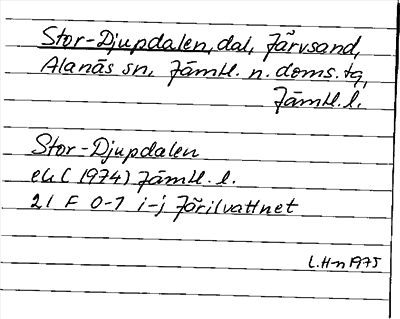 Stor-Djupdalen, dal, Järvsand,
Alanäs sn, Jämtl. n. doms. tg,
Jämtl. l.
Stor-Djupdalen
ek (1974) Jämtl. l.
21 F 0-1 i-j Jörilvattnet
L.H-n 1975